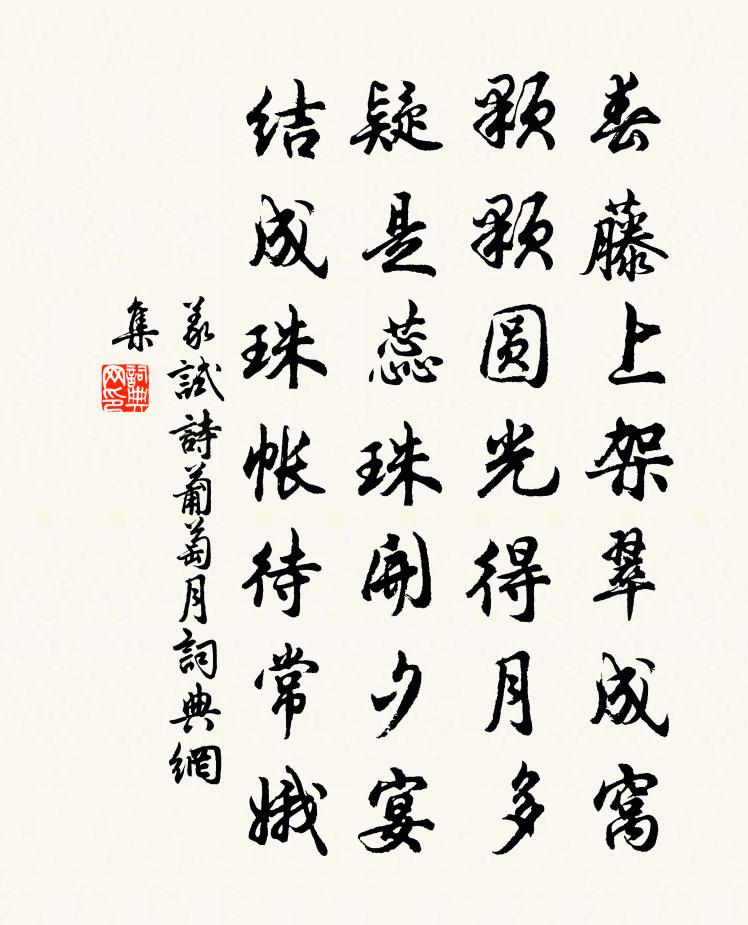 春藤上架翠成窝
颗颗圆光得月多
疑是蕊珠開夕宴
结成珠帐待常娥
義試詩葡萄月詞典網
集
詞典
网印